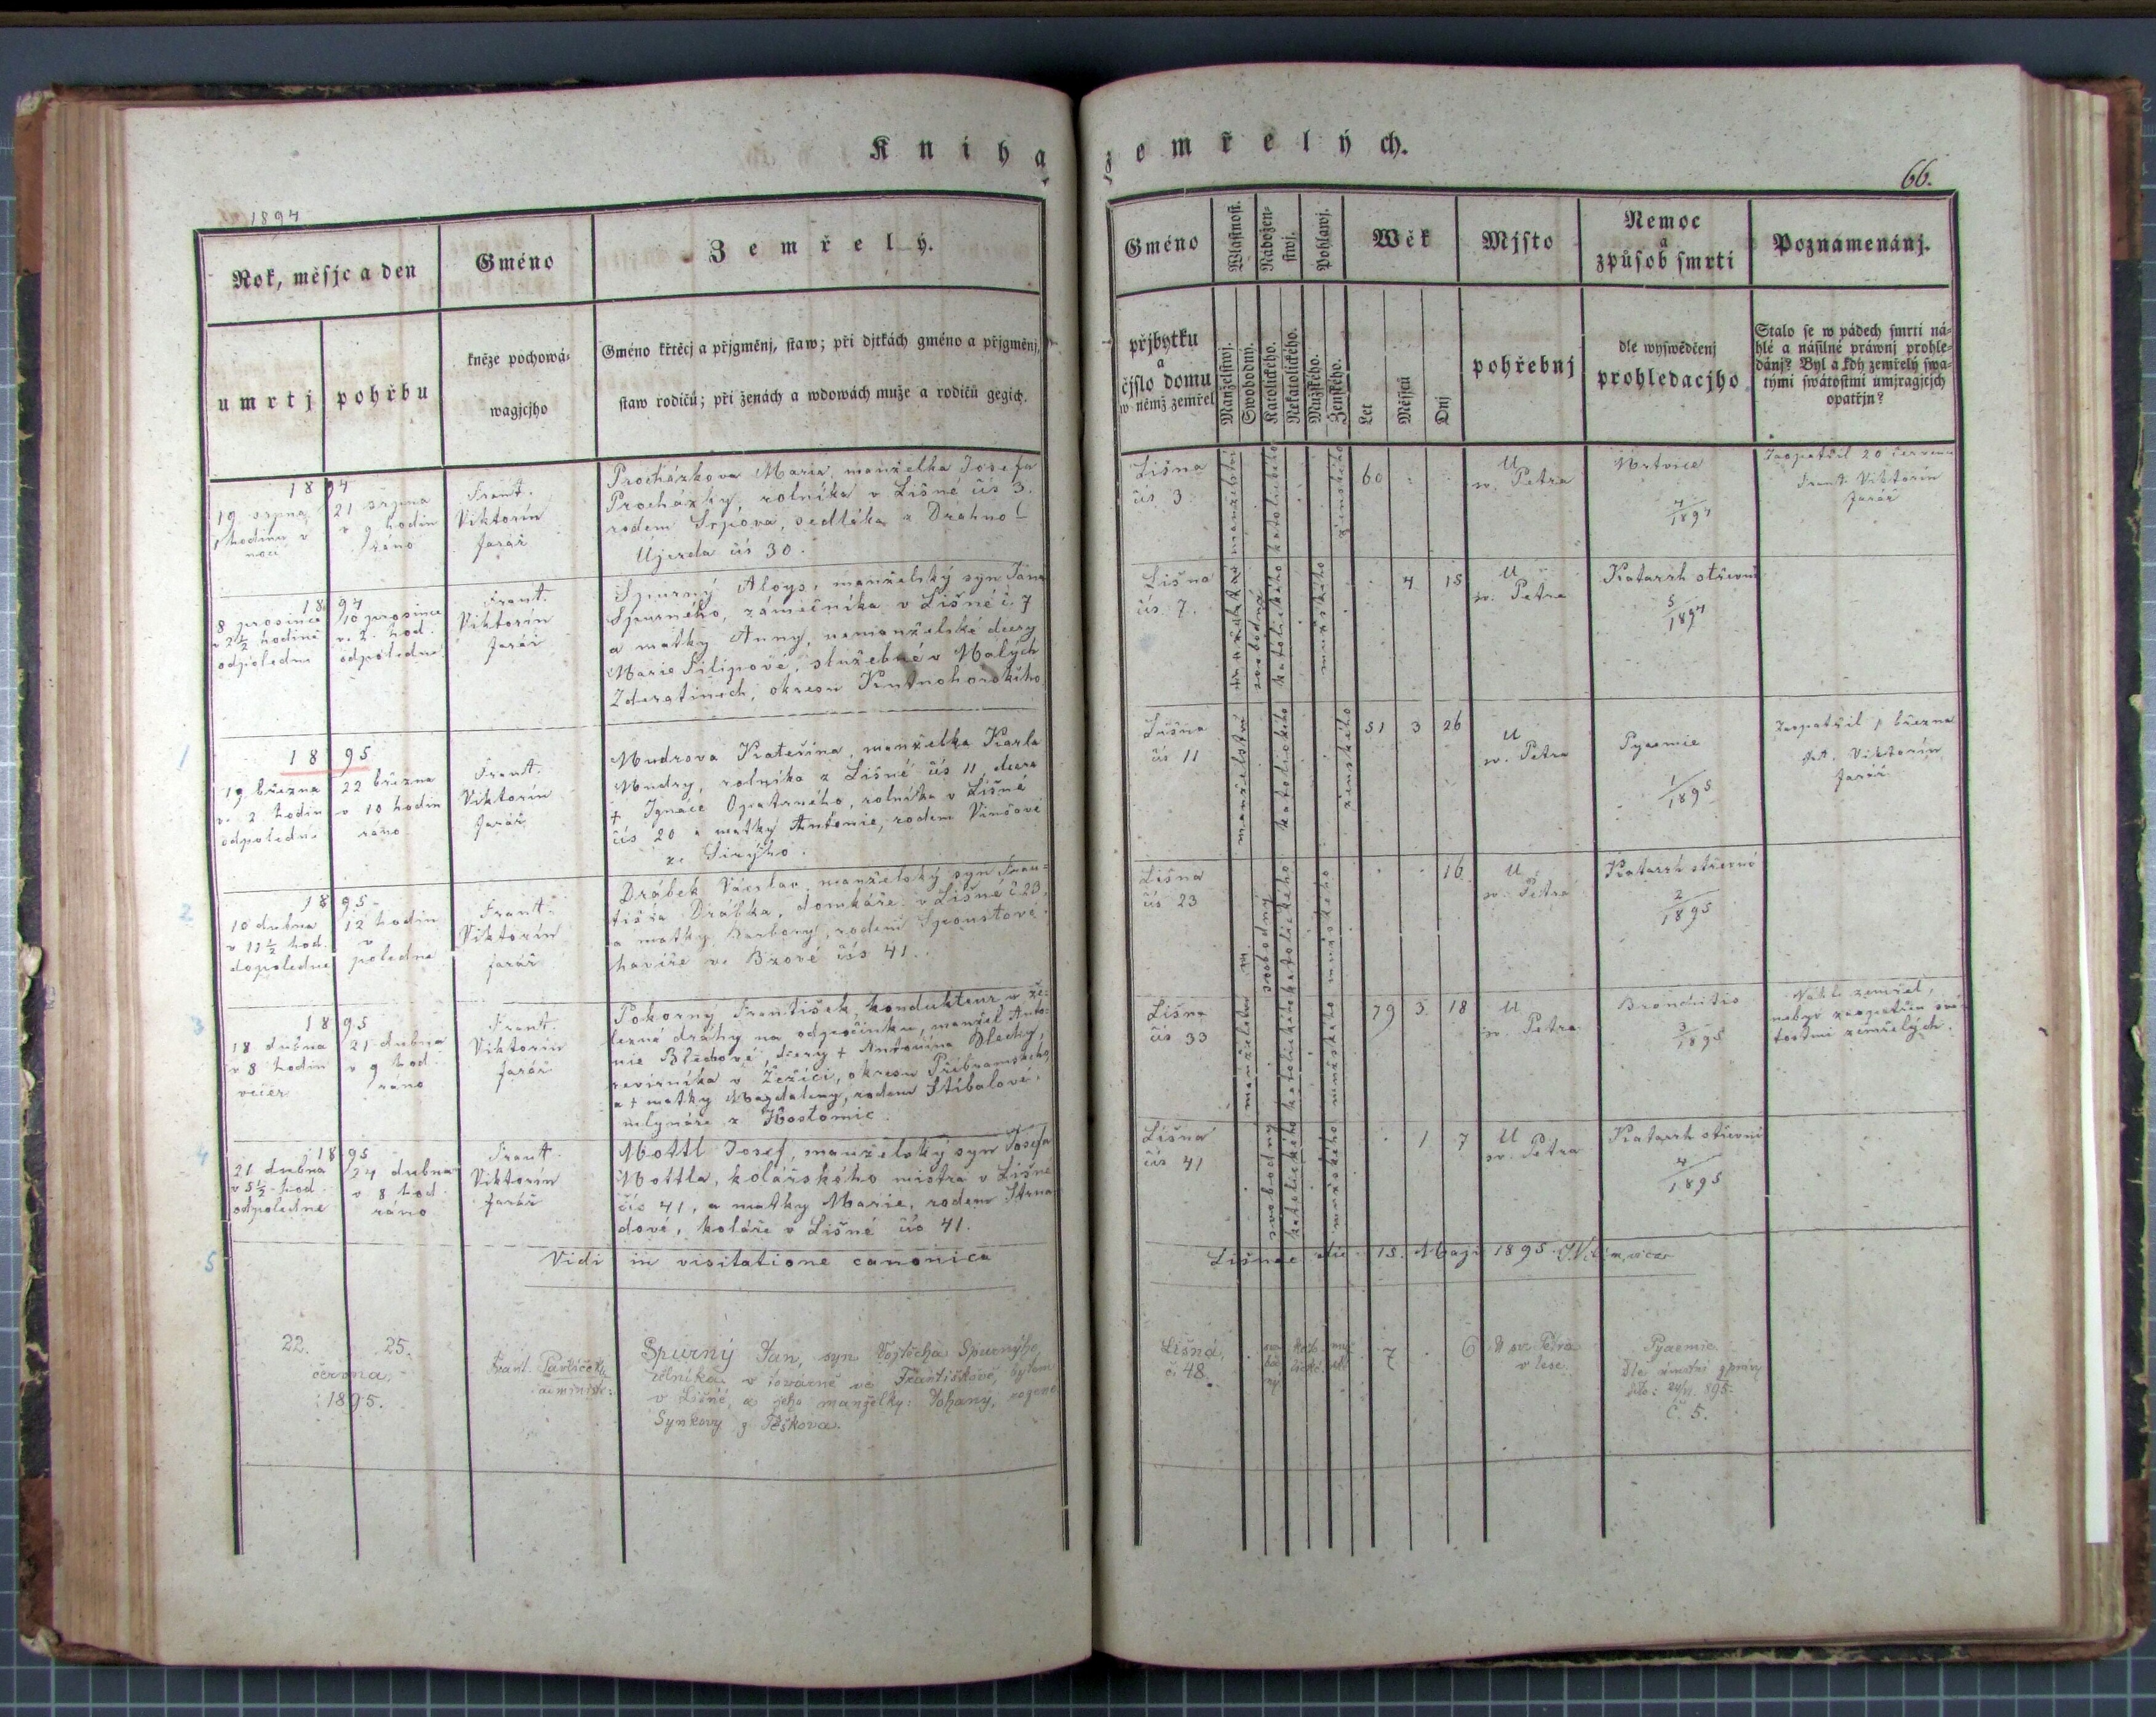 Kniha zemřelých.
1894
66.
Rok, měsjc a den
Gméno
Zemřelý.
umrtj
pohřbu
kněze pochowá-
wagjcjho
Gméno křtěcj a přjgměnj, staw; při djtkách gméno a přjgměnj,
staw rodičů; při ženách a wdowách muže a rodičů gegich.
Gméno
přjbytku
a
čjslo domu
w němž zemřel
Wlastnost.
Nábožen-
stwj.
Pohlawj.
Manželstwj.
Swobodnu.
Katolického.
Nekatolického.
Mužského.
Ženského.
Wěk
Let
Měsjců
Dnj
Mjsto
pohřebnj
Nemoc
a
způsob smrti
dle wyswědčenj
prohledacjho
Poznamenánj.
Stalo se w pádech smrti ná-
hlé a násilné práwnj prohle-
dánj? Byl a kdy zemřelý swa-
tými swátostmi umjragjcjch
opatřjn?
1894
19 srpna
1 hodinu v
noci
21 srpna
v 9 hodin
ráno
Frant.
Viktorin
farář
Procházkova Maria, manželka Josefa
Procházky, rolníka v Lišné čís 3.
rodem Srpova, sedláka z Drahno-
Újezda čís 30.
Lišna
čís 3
manželství
katolického
ženského
60
U
sv. Petra
Mrtvice
7/1894
Zaopatřil 20 červen
Frant. Viktorin
farář
1894
8 prosince
v 2½ hodině
odpoledne
10 prosince
v 2 hod.
odpoledne
Frant.
Viktorin
farář
Spurný Aloys, manželský syn Jana
Spurného, zámečníka v Lišné č. 7
a matky Anny, nemanželské dcery
Marie Filipové, služebné v Malých
Zderatinech, okresu Kutnohorského
Lišna
čís. 7.
svobodný
katolického
mužského
4 15
U
sv. Petra
Katarrh střevní
5/1894
1
1895
19 března
v 2 hodin
odpoledne
22 března
v 10 hodin
ráno
Frant.
Viktorin
farář
Mudrova Kateřina, manželka Karla
Mudry, rolníka z Lišné čís 11, dcera
† Ignáce Opatrného, rolníka v Lišné
čís 20 a matky Antonie, rodem Vimšové
ze Sirýho.
Lišna
čís 11
manželství
katolického
ženského
51 3 26
U
sv. Petra
Pyaemie
1/1895
Zaopatřil 1 března
Frt. Viktorin
farář
2
1895
10 dubna
v 11½ hod.
dopoledne
12 hodin
v
poledne
Frant.
Viktorin
farář
Drábek Václav, manželský syn Fran-
tiška Drábka, domkáře v Lišné č 23,
a matky Barbory, rodem Spoustové
havíře ve Bzové čís 41.
Lišna
čís 23
svobodný
katolického
mužského
16
U
sv. Petra
Katarrh střevní
2/1895
3
1895
18 dubna
v 8 hodin
večer
21 dubna
v 9 hod.
ráno
Frant.
Viktorin
farář
Pokorný František, kondukteur u že-
lezné dráhy na odpočinku, manžel Anto-
nie Blechové, dcery † Antonína Blechy,
revírníka v Žežici, okresu Příbramského
a † matky Magdaleny, rodem Stíbalové,
mlynáře z Hostomic.
Lišna
čís 33
katolického
mužského
79 3 18
U
sv. Petra
Bronchitis
3/1895
Náhle zemřel,
nebyv zaopatřen svá-
tostmi zemřelých.
4
1895
21 dubna
v 5½ hod.
odpoledne
24 dubna
v 8 hod
ráno
Frant.
Viktorin
farář
Mottl Josef, manželský syn Josefa
Mottla, kolářského mistra v Lišné
čís 41, a matky Marie, rodem Strna-
dové, koláře v Lišné čís 41.
Lišna
čís 41
svobodný
katolického
mužského
1 7
U
sv. Petra
Katarrh střevní
4/1895
Vidi in visitatione canonica Lišnae die 15. Maji 1895
5
22. 25.
června
1895.
Frant. Pavlíček,
administr.
Spurný Jan, syn Vojtěcha Spurnýho,
dělníka v továrně ve Františkově, bytem
v Lišné, a jeho manželky: Johany, rozené
Synkovy z Pěškova.
Lišná,
č. 48.
svo-
bod-
ný
kato-
lické.
muž-
7 6
U sv. Petra
v lese.
Pyaemie
dle úmrtní zprávy
dto: 24/VI. 895.
Č. 5.